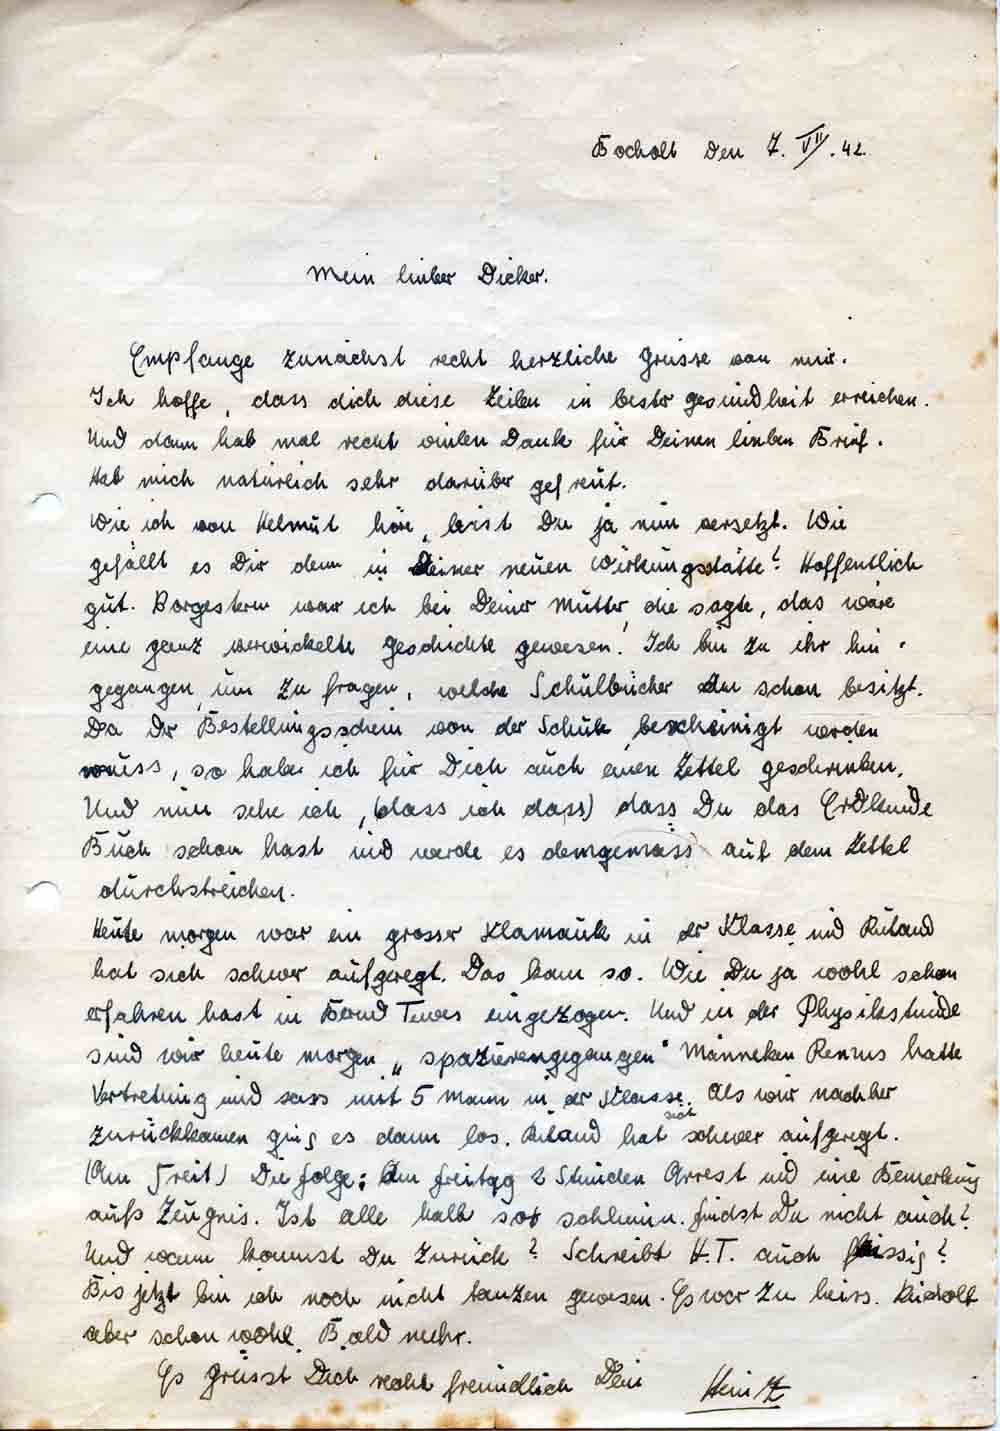 Bocholt den 7. VII. 42.
Mein lieber Dicker.
Empfange zunächst recht herzliche Grüsse von mir.
Ich hoffe, dass dich diese Zeilen in bester gesundheit erreichen.
Und dann hab mal recht vielen Dank für Deinen lieben Brief.
Hab mich natürlich sehr darüber gefreut.
Wie ich von Helmut höre, bist Du ja nun versetzt. Wie
gefällt es Dir denn in Deiner neuen Wirkungsstätte? Hoffentlich
gut. Vorgestern war ich bei Deiner Mutter, die sagte, das wäre
eine ganz verwickelte Geschichte gewesen. Ich bin zu ihr hin-
gegangen, um zu fragen, welche Schulbücher du schon besitzt.
Da der Bestellungsschein von der Schule bescheinigt werden
muss, so habe ich für Dich auch einen Zettel geschrieben.
Und nun sehe ich, (dass ich dass) dass Du das Erdkunde
Buch schon hast und werde es demgemäss auf dem Zettel
durchstreichen.
Heute morgen war ein grosser Klamauk in der Klasse und Ruland
hat sich schwer aufgeregt. Das kam so. Wie Du ja wohl schon
erfahren hast in Bernd Tewes eingezogen. Und in der Physikstunde
sind wir heute morgen „spazierengegangen“ Männeken Renzus hatte
Vertretung und sass mit 5 Mann in der Klasse. Als wir nachher
zurückkamen ging es dann los. Ruland hat sich schwer aufgeregt.
(Am Freit) Die folge: Am freitag 2 Stunden Arrest und eine Bemerkung
aufs Zeugnis. Ist alle halb so schlimm. findst Du nicht auch?
Und wann kommst Du zurück? Schreibt H.T. auch fleissig?
Bis jetzt bin ich noch nicht tanzen gewesen. Es war zu heiss. Rudolf
aber schon wohl. Bald mehr.
Es grüsst Dich recht freundlich Dein Heinz